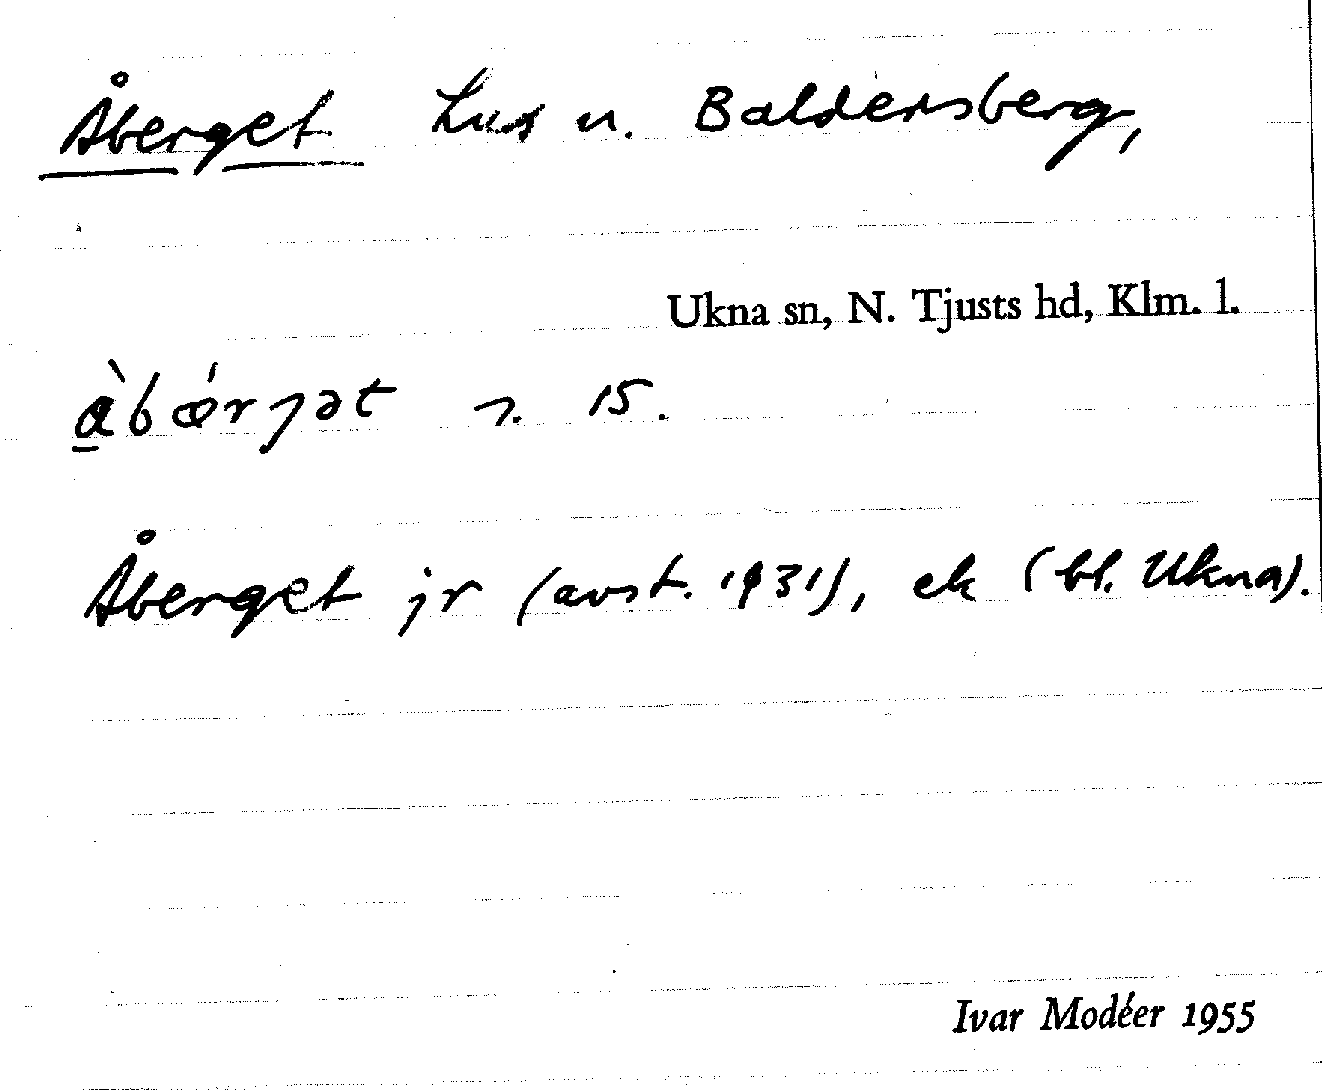 Åberget hus u. Baldersberg,
Ukna sn, N. Tjusts hd, Klm. l.
n. 15.
Åberget jr (avst. 1931), ek (bl. Ukna).
Ivar Modéer 1955